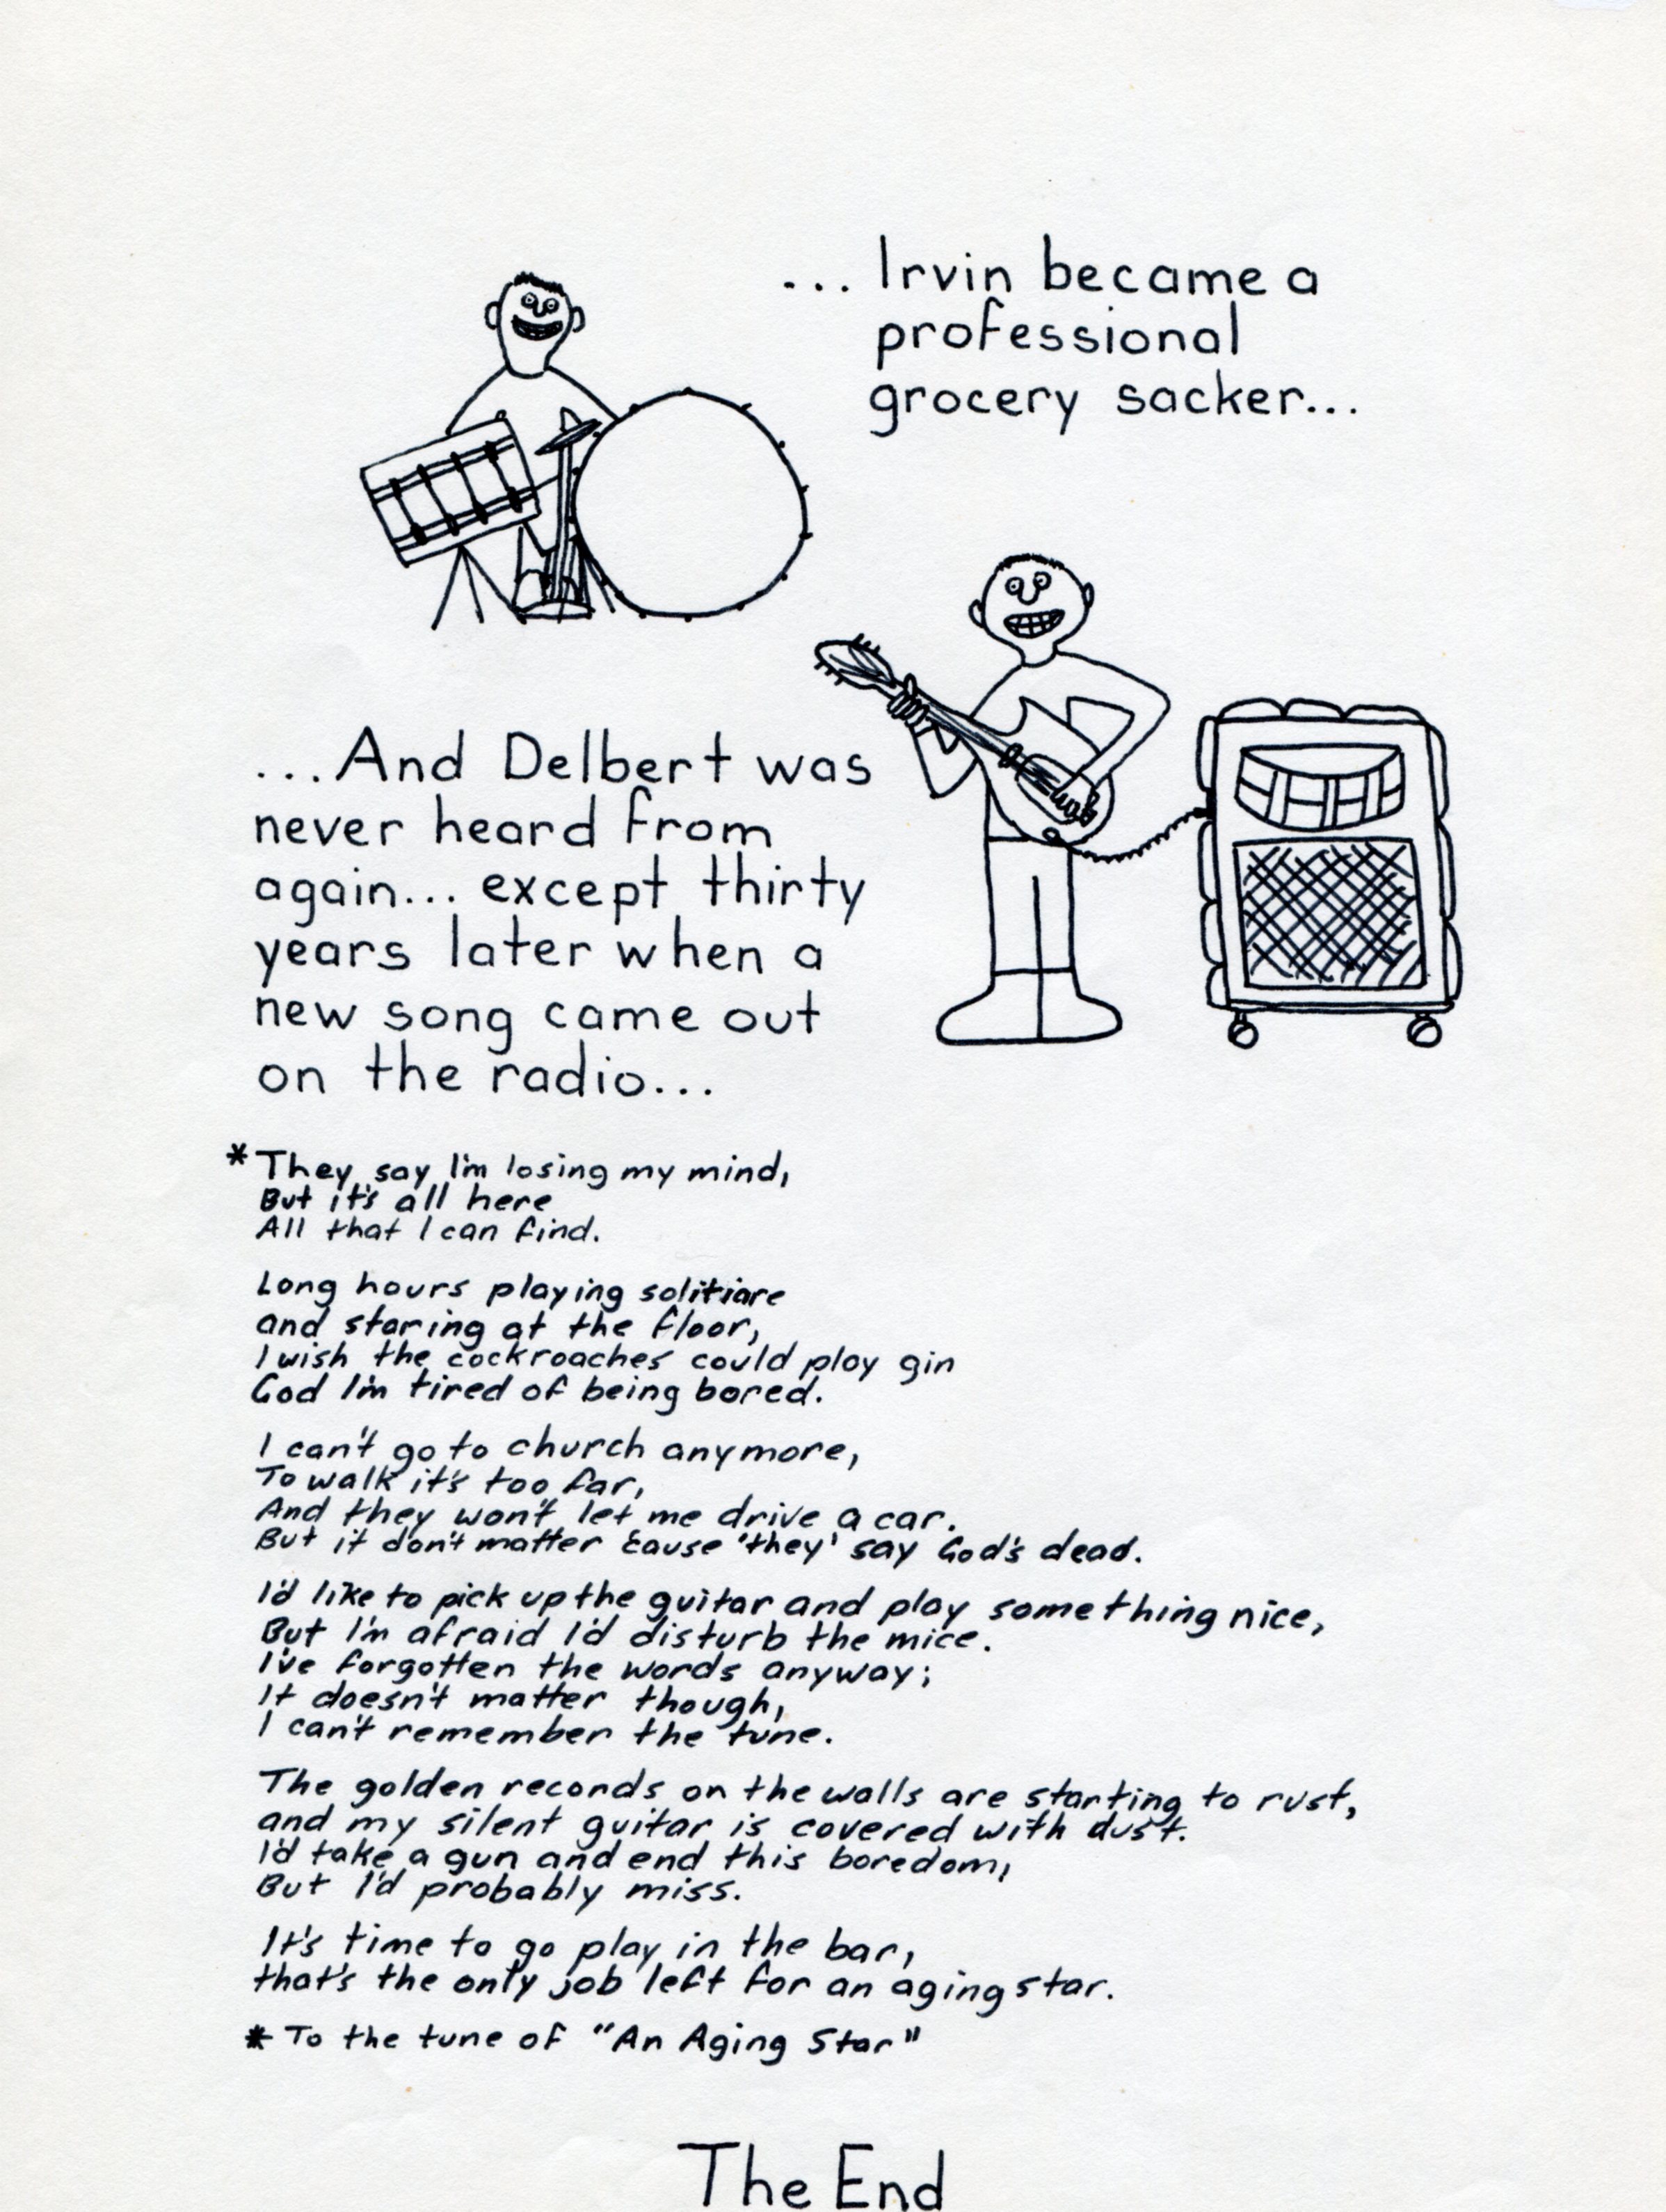 ... Irvin became a
professional
grocery sacker...
...And Delbert was
never heard from
again... except thirty
years later when a
new song came out
on the radio...
*They say I'm losing my mind,
But it's all here
All that I can find.
Long hours playing solitiare
and staring at the floor,
I wish the cockroaches could play gin
God I'm tired of being bored.
I can't go to church anymore,
To walk it's too far,
And they won't let me drive a car.
But it don't matter 'cause 'they' say God's dead.
I'd like to pick up the guitar and play something nice,
But I'm afraid I'd disturb the mice.
I've forgotten the words anyway;
It doesn't matter though,
I can't remember the tune.
The golden records on the walls are starting to rust,
and my silent guitar is covered with dust.
I'd take a gun and end this boredom,
But I'd probably miss.
It's time to go play in the bar,
that's the only job left for an aging star.
* To the tune of "An Aging Star"
The End